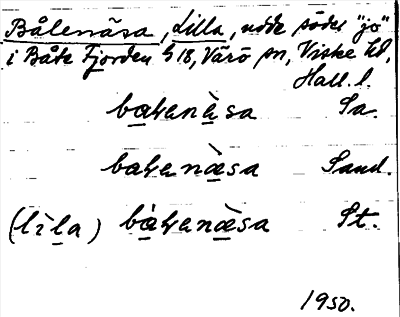 Bålenäsa, Lilla, udde söder "jo"
i Båte Fjorden § 18, Värö sn, Viske hd,
Hall. l.
bałenàsa Sa.
bałenæ̀sa Sand.
(lìla) bàłenæ̀sa St.
1950.